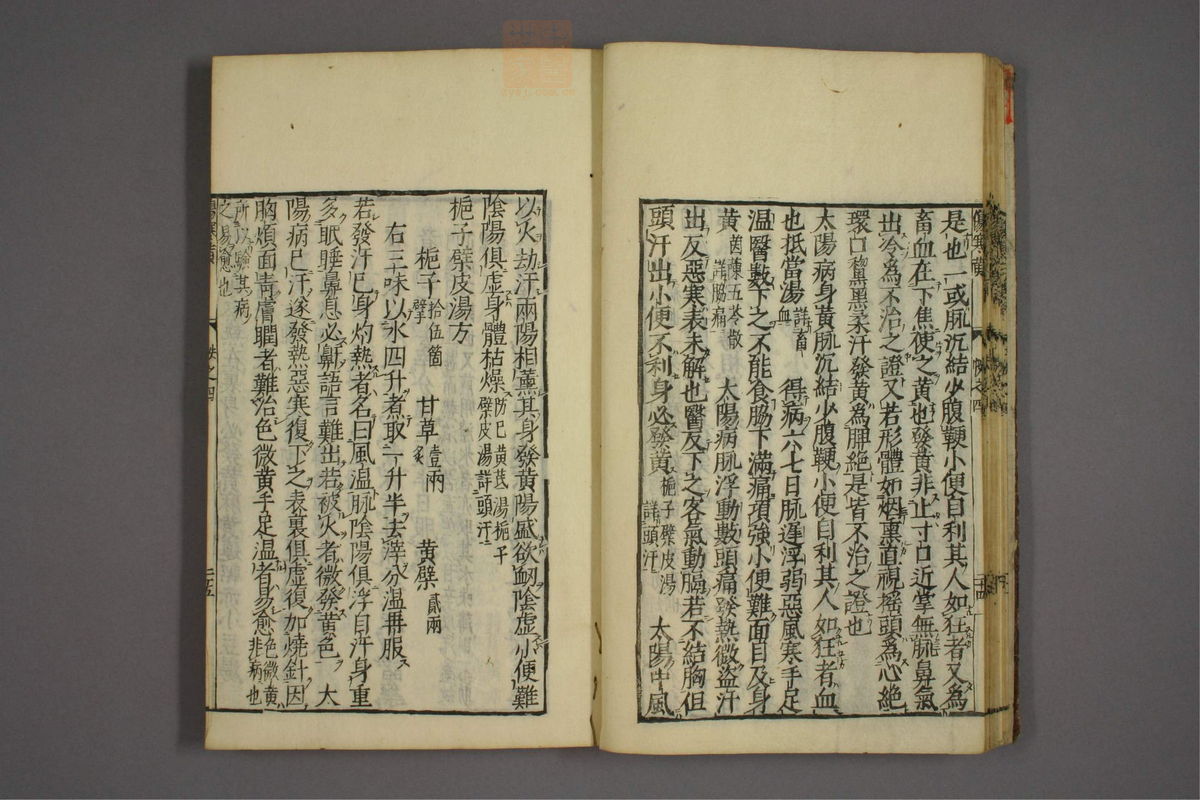 是也一或脈沉結少腹鞕小便自利其人如狂者又爲
畜血在下焦使之黃也發黃非止寸口近掌無脈鼻氣
出冷爲不治之證又若形體如烟熏直視搖頭爲心絕
環口黧黑柔汗發黃爲脾絕是皆不治之證也
太陽病身黃脈沉結少腹鞕小便自利其人如狂者血
也抵當湯詳畜血 得病六七日脈遲浮弱惡風寒手足
溫醫數下之不能食脇下滿痛項強小便難面目及身
黃茵蔯五苓散詳脇痛 太陽病脈浮動數頭痛發熱微盜汗
出反惡寒表未解也醫反下之客氣動膈若不結胸但
頭汗出小便不利身必發黃梔子檗皮湯詳頭汗 太陽中風
以火劫汗兩陽相薰其身發黃陽盛欲衂陰虛小便難
陰陽俱虛身體枯燥防己黃芪湯梔子檗皮湯詳頭汗
梔子檗皮湯方
梔子拾伍箇擘 甘草壹兩炙 黃檗貳兩
右三味以水四升煮取一升半去滓分溫再服
若發汗已身灼熱者名曰風溫脈陰陽俱浮自汗身重
多眠睡鼻息必鼾語言難出若被火者微發黃色 太
陽病已汗遂發熱惡寒復下之表裏俱虛復加燒針因
胸煩面青膚瞤者難治色微黃手足溫者易愈色微黃非病也
所以驗其病之易愈也